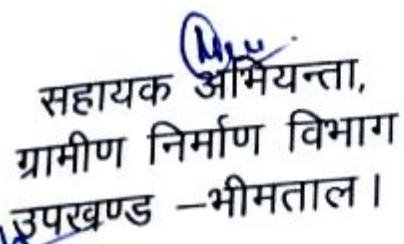 सहायक अभियन्ता,
ग्रामीण निर्माण विभाग
उपखण्ड –भीमताल।